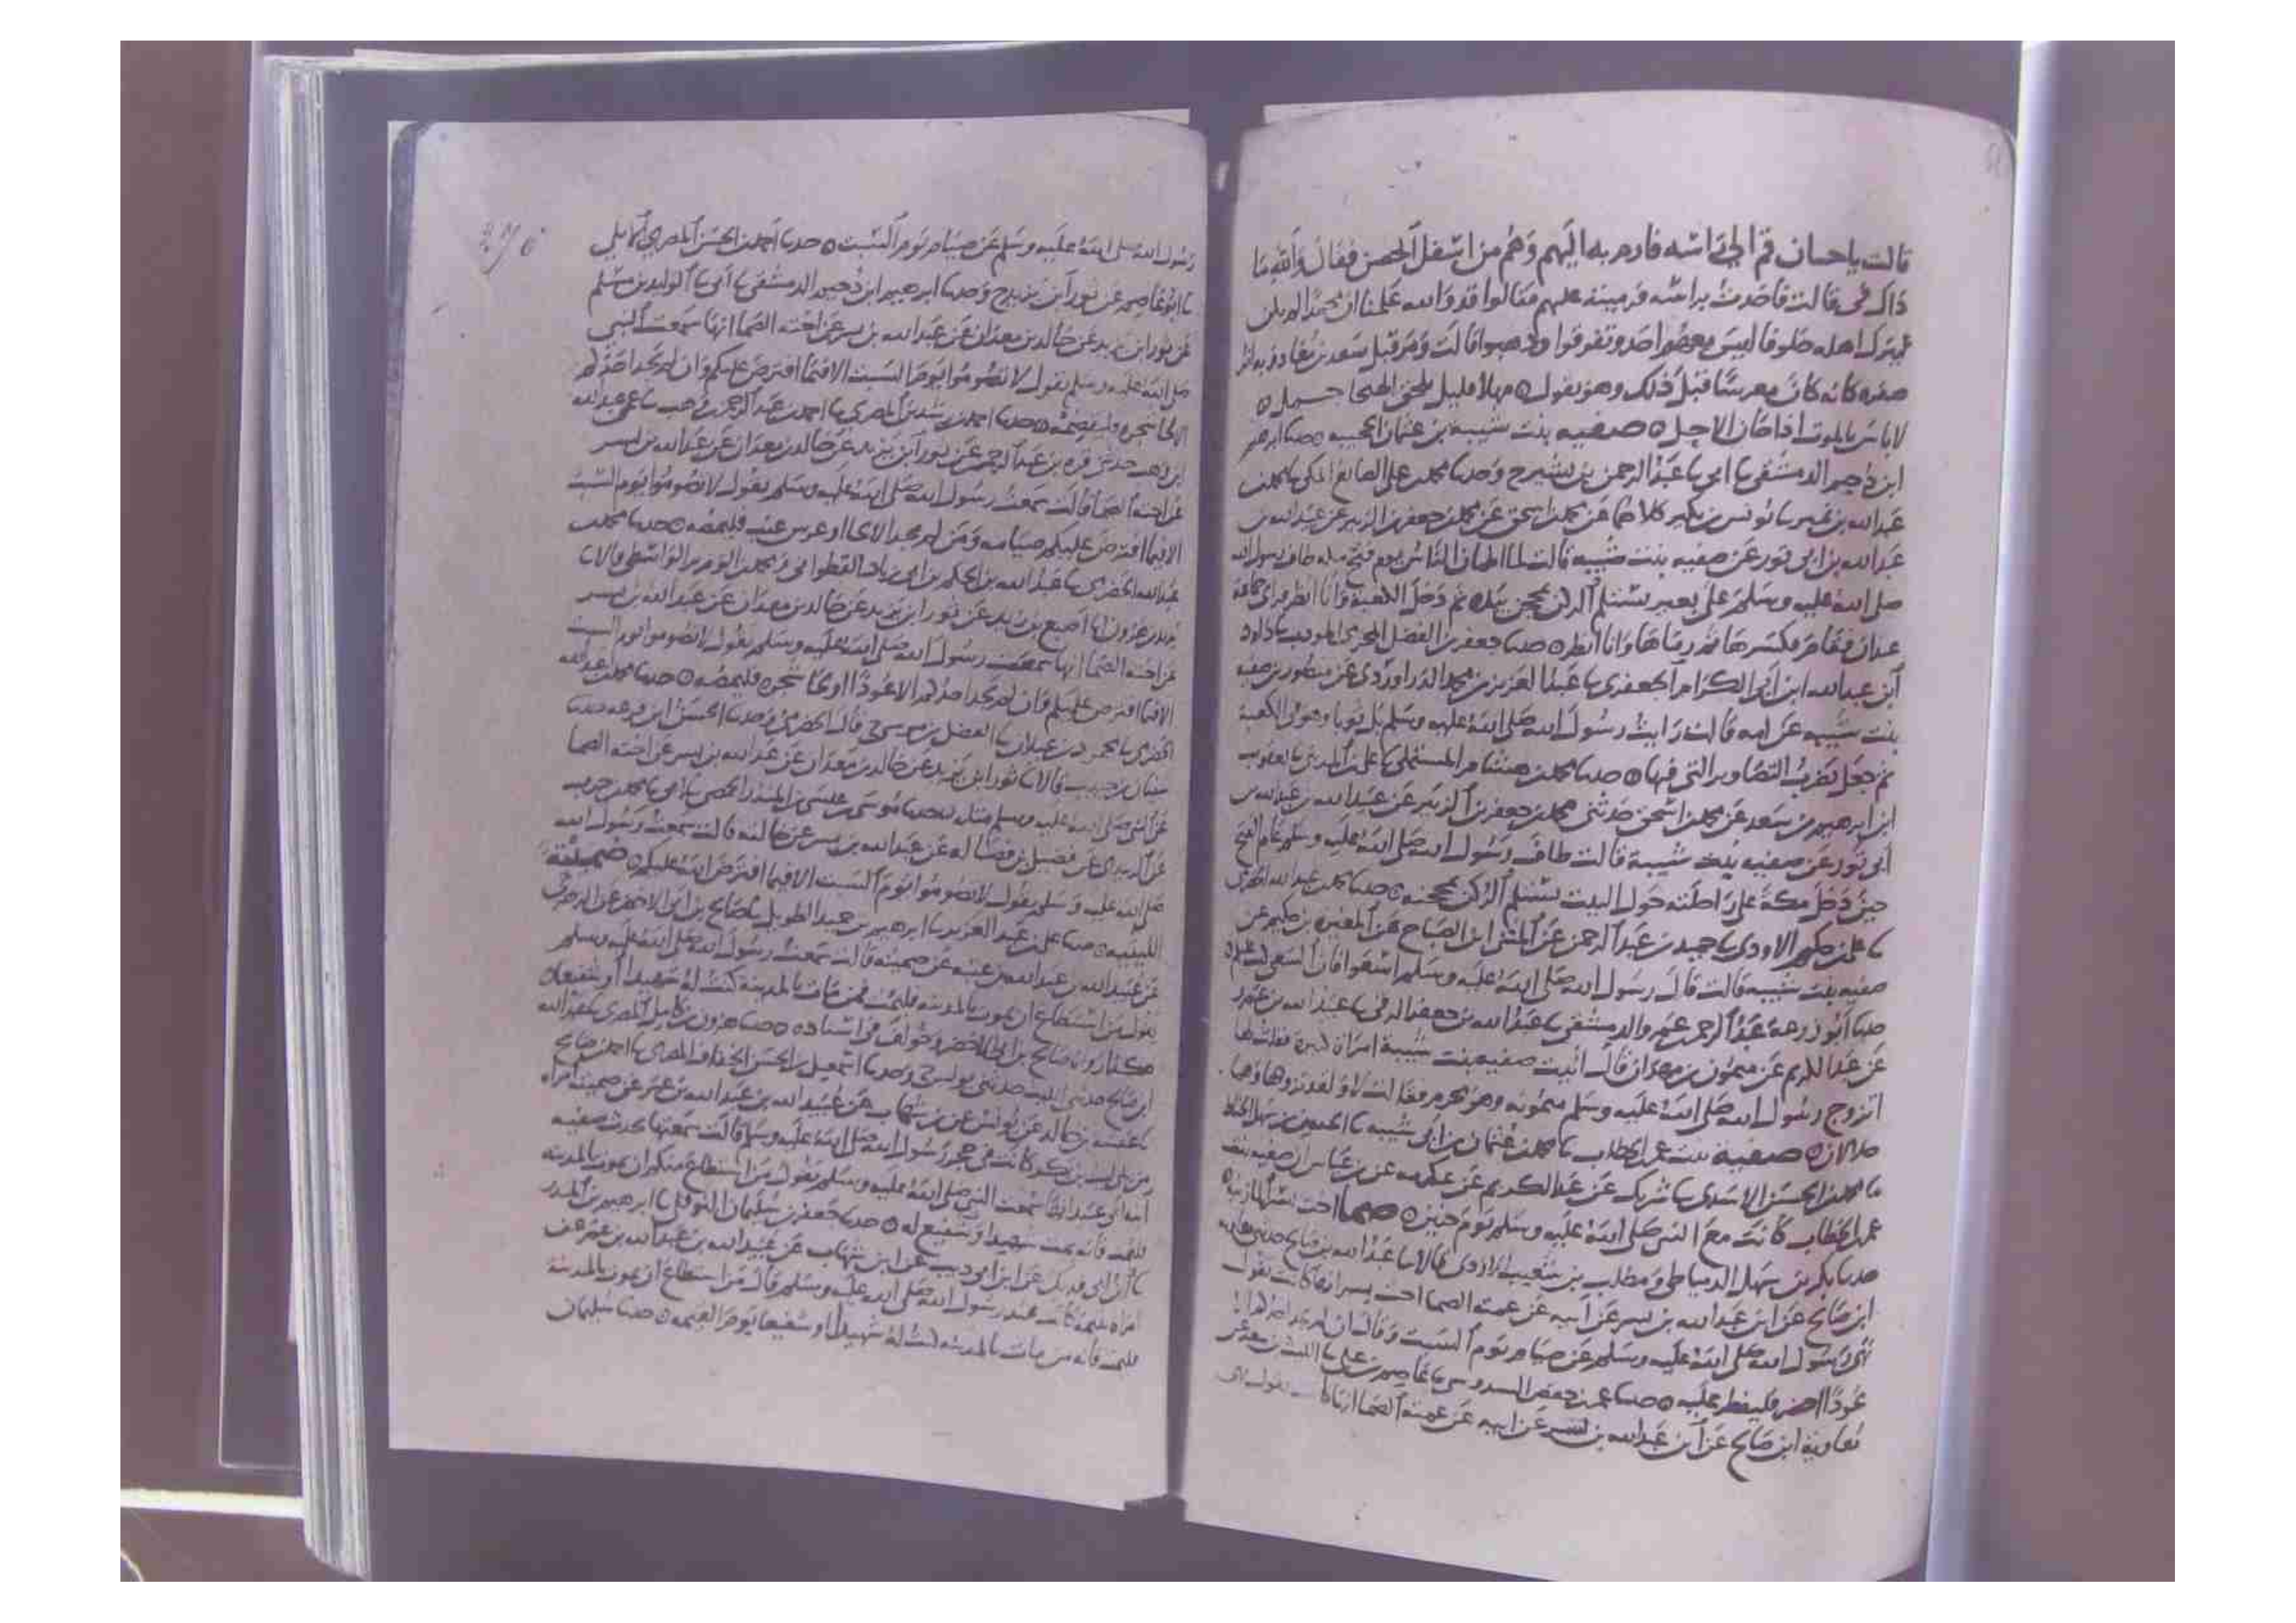 قالت يا حسان قم الى راسه فارم به اليهم وهم من اسفل الحصن فقال والله ما
ذاك في قالت فاخذت براسه فرميت به عليهم فقالوا قد والله علمنا ان محمدا لم يكن
ليترك اهله خلوفا ليس معهم احد وتفرقوا وذهبوا قالت ومر قبل سعد بن معاذ وبه اثر
صفره كانه كان معرسا قبل ذلك وهو يقول ه مهلا قليل يلحق الهيجا حمل ه
لا باس بالموت اذا حان الاجل ه صفيه بنت شيبه بن عثمان الحجبيه ه حدثنا ابرهيم
ابن دحيم الدمشقي ثنا ابي ثنا عبد الرحمن بن بشير ح وحدثنا محمد بن علي الصايغ المكي ثنا محمد بن
عبد الله بن نمير ثنا يونس بن بكير كلاهما عن محمد بن اسحق عن محمد بن جعفر بن الزبير عن عبيد الله بن
عبد الله بن ابي ثور عن صفيه بنت شيبه قالت لما اطمان الناس يوم فتح مكه طاف رسول الله
صلى الله عليه وسلم على بعير يستلم الركن بمحجن بيده ثم دخل الكعبة وانا انظر فراى حمامة
عيدان فقام فكسرها ثم رماها وانا انظر ه حدثنا جعفر بن الفضل المودب ثنا داود
ابن عبد الله ابن ابي الكرام الجعفري ثنا عبد العزيز بن محمد الدراوردي عن منصور بن صفيه
بنت شيبه عن امه قالت رايت رسول الله صلى الله عليه وسلم بل ثوبا وهو في الكعبة
ثم جعل يضرب التصاوير التي فيها ه حدثنا محمد بن هشام المستملي ثنا علي بن المديني ثنا يعقوب
ابن ابرهيم بن سعد عن محمد بن اسحق حدثني محمد بن جعفر بن الزبير عن عبيد الله بن عبد الله بن
ابي ثور عن صفيه بنت شيبة قالت طاف رسول الله صلى الله عليه وسلم عام الفتح
حين دخل مكة على راحلته حول البيت يستلم الركن بمحجنه ه حدثنا محمد بن عبد الله الحضرمي
ثنا علي بن حكيم الاودي ثنا حميد بن عبد الرحمن عن المثنى ابن الصباح عن المغيره بن حكيم عن
صفيه بنت شيبه قالت قال رسول الله صلى الله عليه وسلم اسعوا فان السعي كتب عليكم ه
حدثنا ابو زرعة عبد الرحمن بن عمرو الدمشقي ثنا عبد الله بن جعفر الرقي ثنا عبيد الله بن عمرو
عن عبد الكريم عن ميمون بن مهران قال اتيت صفيه بنت شيبة امراة كبيرة فقلت لها
اتزوج رسول الله صلى الله عليه وسلم ميمونه وهو محرم فقالت لا ولقد تزوجها وهما
حلالان ه صفية بنت عمر بن الخطاب ثنا محمد بن عثمان بن ابي شيبه ثنا الحسين بن سهل الحناط
ثنا محمد بن الحسن الاسدي ثنا شريك عن عبد الكريم عن عكرمه عن بن عباس ان صفيه بنت
عمر بن الخطاب كانت مع النبي صلى الله عليه وسلم يوم حنين ه صما اخت بسر المازنيه
حدثنا بكر بن سهل الدمياطي ومطلب بن شعيب الازدي قالا ثنا عبد الله بن صالح حدثني معاويه
ابن صالح عن ابن عبد الله بن بسر عن ابيه عن عمته الصما اخت بسر انها كانت تقول
نهى رسول الله صلى الله عليه وسلم عن صيام يوم السبت وقال ان لم يجد احدكم الا
عودا اخضر فليفطر عليه ه حدثنا عمر بن حفص السدوسي ثنا عاصم بن علي ثنا الليث بن سعد عن
معاوية ابن صالح عن ابن عبد الله بن بسر عن ابيه عن عمته الصما انها كانت تقول نهى
رسول الله صلى الله عليه وسلم عن صيام يوم السبت ه حدثنا احمد بن الحسن المصري الايلي
ثنا ابو عاصم عن ثور ابن يزيد ح وحدثنا ابرهيم ابن دحيم الدمشقي ثنا ابي ثنا الوليد بن مسلم
عن ثور ابن يزيد عن خالد بن معدان عن عبد الله بن بسر عن اخته الصما انها سمعت النبي
صلى الله عليه وسلم يقول لا تصوموا يوم السبت الا فيما افترض عليكم وان لم يجد احدكم
الا لحا شجره فليمضغه ه حدثنا احمد بن رشدين المصري ثنا احمد بن عبد الرحمن بن وهب ثنا عمي عبد الله
ابن وهب حدثني قره بن عبد الرحمن عن ثور ابن يزيد عن خالد بن معدان عن عبد الله بن بسر
عن اخته الصما قالت سمعت رسول الله صلى الله عليه وسلم يقول لا تصوموا يوم السبت
الا فيما افترض عليكم صيامه ومن لم يجد الا او غرس عنب فليمضه ه حدثنا محمد بن
عبد الله الحضرمي ثنا عبد الله بن الحكم بن ابي زياد القطواني الواسطي قالا ثنا
يزيد بن هرون انا اصبغ بن زيد عن ثور ابن يزيد عن خالد بن معدان عن عبد الله بن بسر
عن اخته الصما انها سمعت رسول الله صلى الله عليه وسلم يقول لا تصوموا يوم السبت
الا فيما افترض عليكم فان لم يجد احدكم الا عودا او لحا شجره فليمضغه ه حدثنا محمد بن عبد الله
الحضرمي ثنا محمود بن غيلان ثنا الفضل بن موسى ح قال الحضرمي وحدثنا الحسن ابن قزعه حدثنا
سفيان بن حبيب قالا ثنا ثور ابن يزيد عن خالد بن معدان عن عبد الله بن بسر عن اخته الصما
عن النبي صلى الله عليه وسلم مثله حدثنا موسى بن عيسى بن المنذر الحمصي ثنا ابي ثنا محمد بن حرب
عن الزبيدي عن فضيل بن فضاله عن عبد الله بن بسر عن خالته قالت سمعت رسول الله
صلى الله عليه وسلم يقول لا تصوموا يوم السبت الا فيما افترض الله عليكم ه صميتة
الليثيه ه حدثنا علي بن عبد العزيز ثنا ابرهيم بن حميد الطويل ثنا صالح بن ابي الاخضر عن الزهري
عن عبيد الله بن عبد الله بن عتبه عن صميته قالت سمعت رسول الله صلى الله عليه وسلم
يقول من استطاع ان يموت بالمدينه فليمت فمن مات بالمدينة كنت له شهيدا او شفيعا ه
هكذا رواه صالح بن ابي الاخضر وخولف في اسناده ه حدثنا هرون بن كامل المصري ثنا عبد الله
ابن صالح حدثني الليث حدثني يونس ح وحدثنا اسمعيل بن الحسن الخفاف المصري ثنا احمد بن صالح
ثنا عنبسه بن خالد عن يونس عن بن شهاب عن عبيد الله بن عبد الله بن عمر عن صميته امراه
من بني ليث بن بكر كانت في حجر رسول الله صلى الله عليه وسلم قالت سمعتها تحدث صفيه
ابنه ابي عبيد انها سمعت النبي صلى الله عليه وسلم يقول من استطاع منكم ان يموت بالمدينه
فليمت فانه يمت شهيدا او شفيع له ه حدثنا جعفر بن سليمان النوفلي ثنا ابرهيم بن المنذر
ثنا بن ابي فديك عن ابن ابي ذيب عن ابن شهاب عن عبيد الله بن عبد الله بن عمر عن
امراه يتيمه كانت عند رسول الله صلى الله عليه وسلم قال من استطاع ان يموت بالمدينة
فليمت فانه من مات بالمدينه كنت له شهيدا او شفيعا يوم القيمه ه حدثنا سليمان